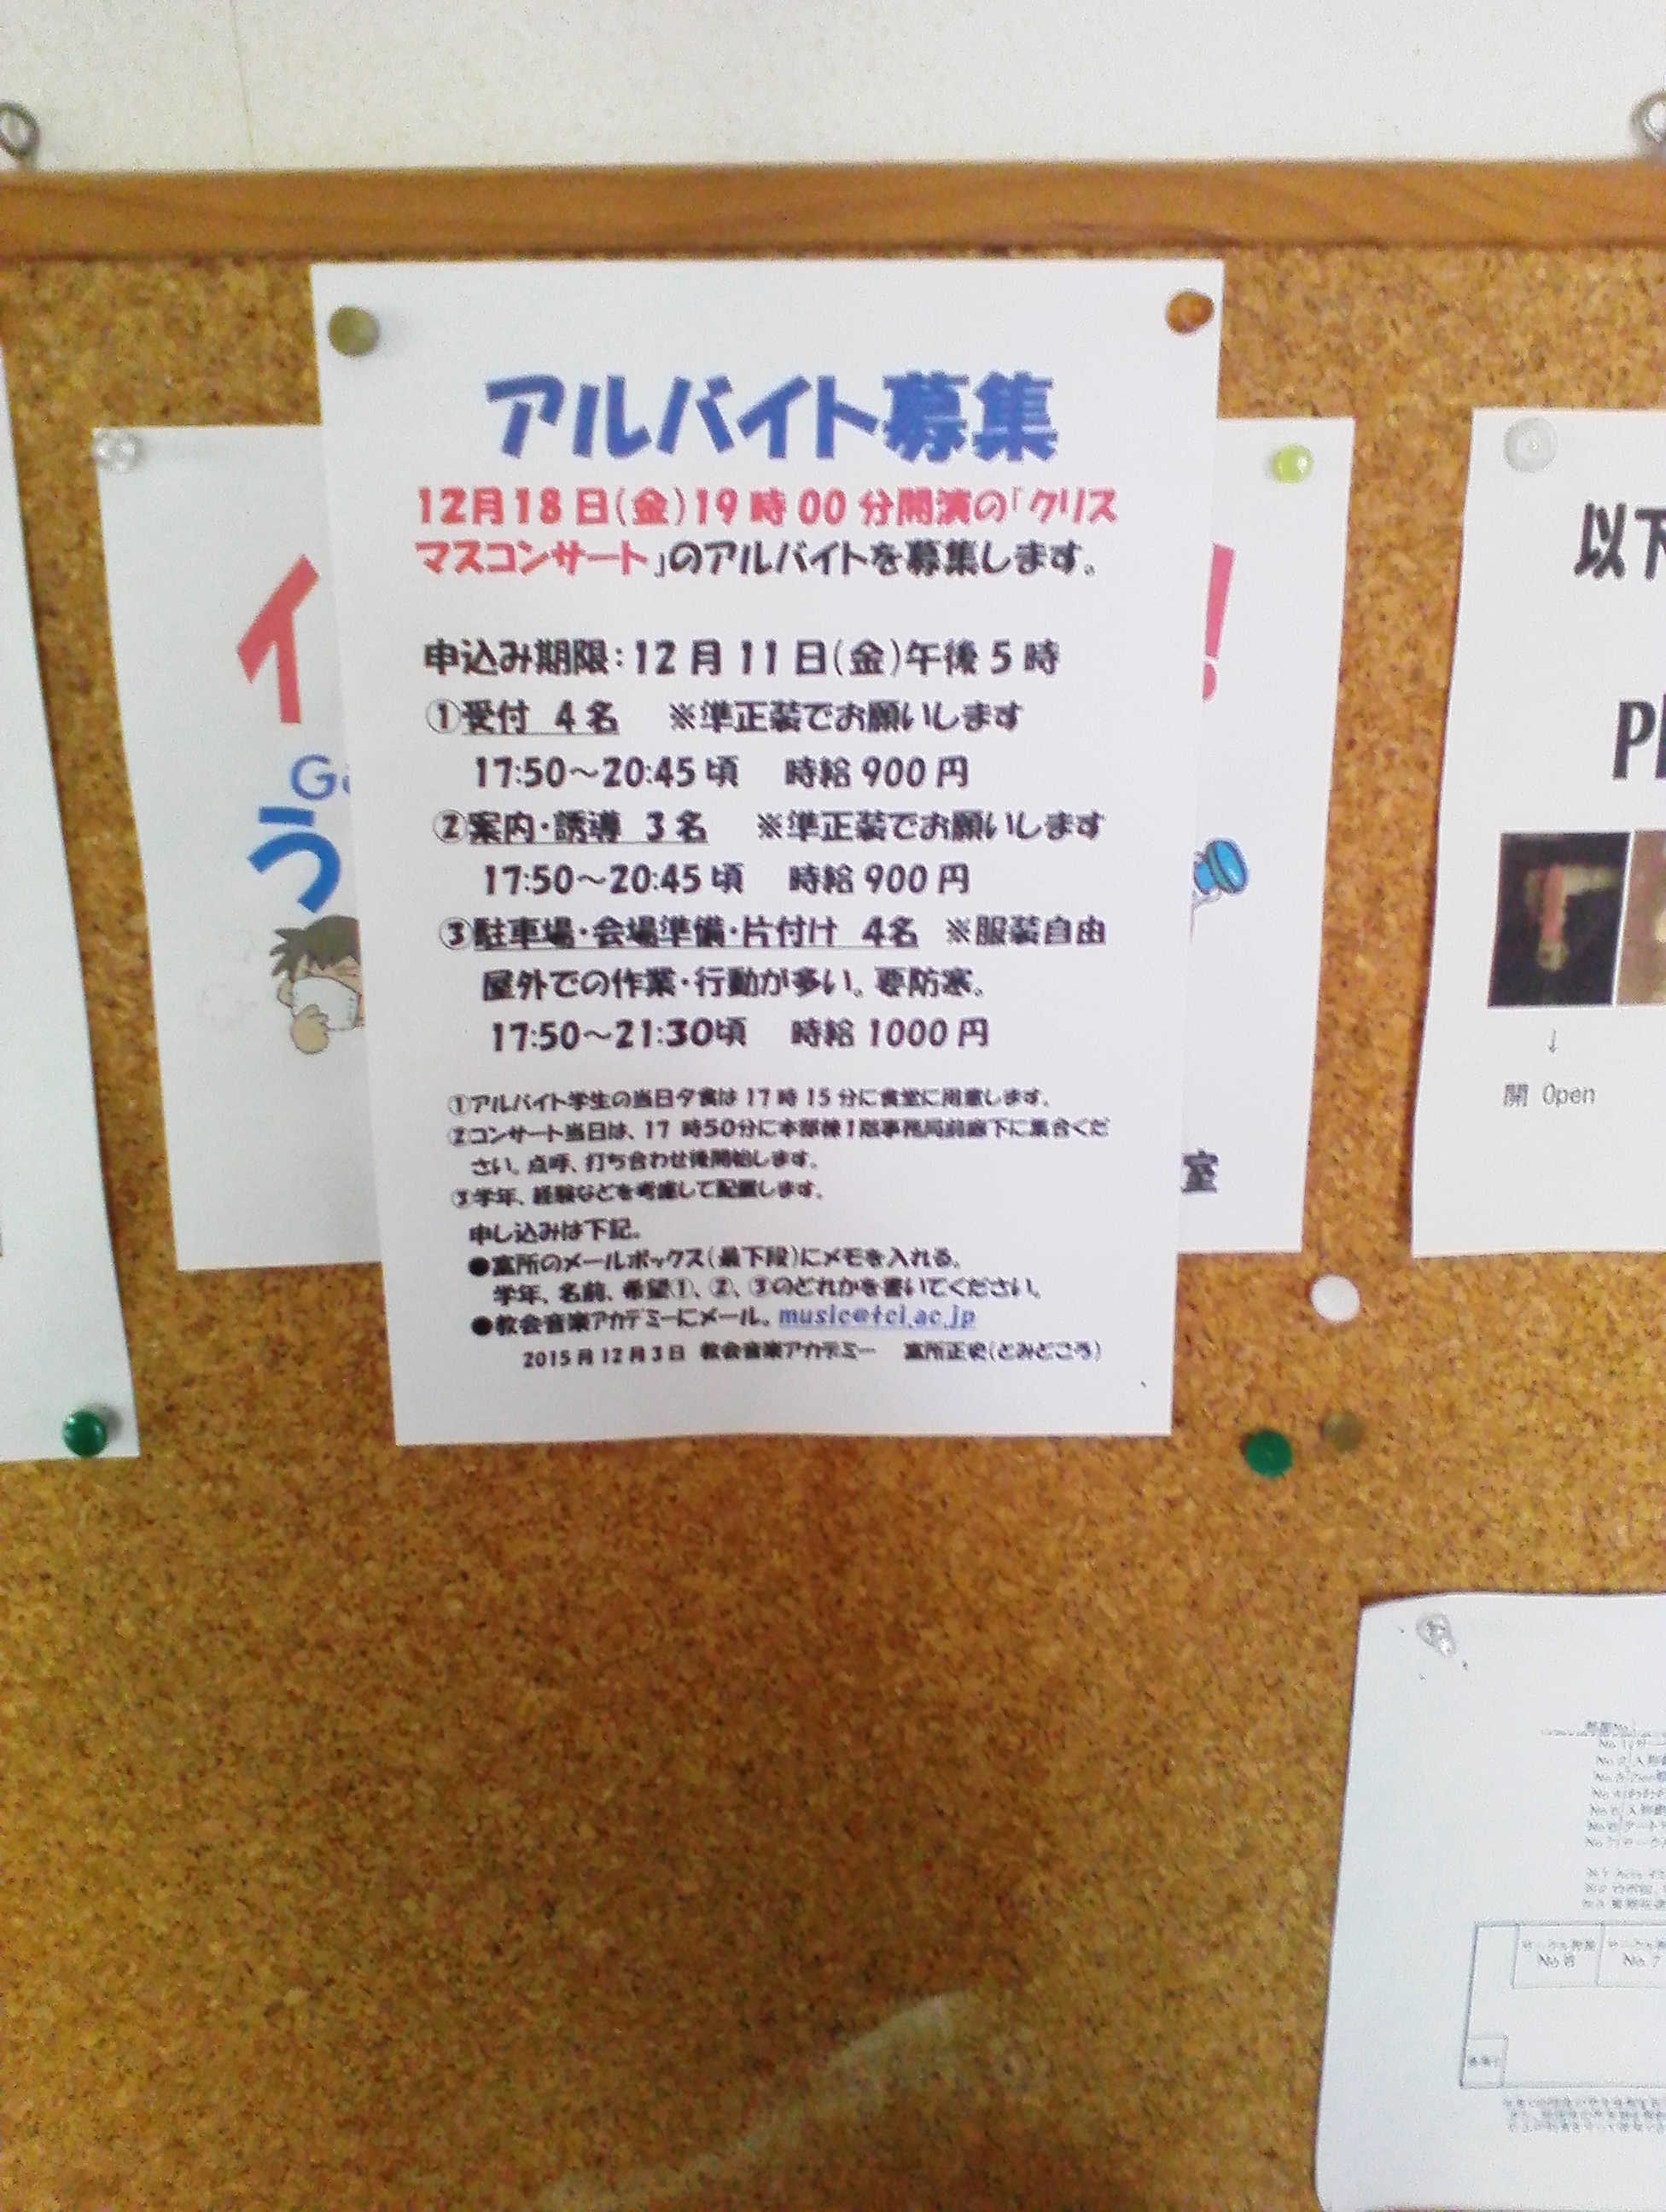 アルバイト募集
12月18日(金)19時00分開演の「クリス
マスコンサート」のアルバイトを募集します。
申込み期限:12月11日(金)午後5時
①受付 4名 ※準正装でお願いします
17:50〜20:45頃 時給900円
②案内・誘導 3名 ※準正装でお願いします
17:50〜20:45頃 時給900円
③駐車場・会場準備・片付け 4名 ※服装自由
屋外での作業・行動が多い。要防寒。
17:50〜21:30頃 時給1000円
①アルバイト学生の当日夕食は17時15分に食堂に用意します。
②コンサート当日は、17時50分に本部棟1階事務局前廊下に集合くだ
さい。点呼、打ち合わせ後開始します。
③学年、経験などを考慮して配置します。
申し込みは下記。
●富所のメールボックス(最下段)にメモを入れる。
学年、名前、希望①、②、③のどれかを書いてください。
●教会音楽アカデミーにメール。music@tci.ac.jp
2015月12月3日 教会音楽アカデミー 富所正史(とみどころ)
イ
!
う
室
以下
開 Open
No.8
No.7